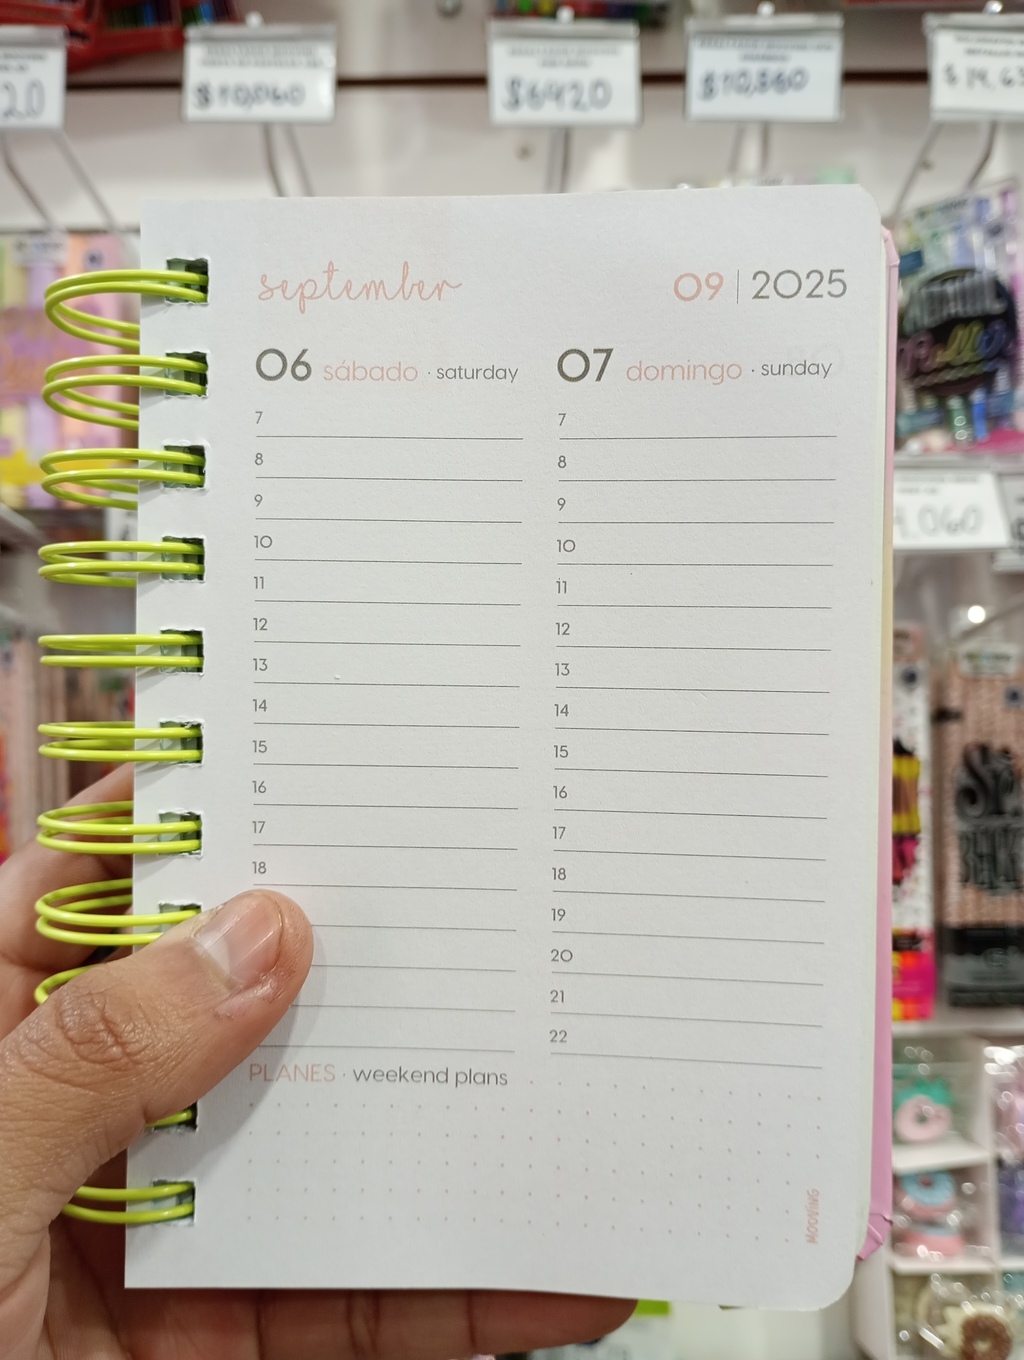 20
$10,060
$6920
$10,860
$14,63
september
09 | 2025
06 sábado · saturday
07 domingo · sunday
7
8
9
10
11
12
13
14
15
16
17
18
7
8
9
10
11
12
13
14
15
16
17
18
19
20
21
22
PLANES · weekend plans
MOOVING
METALLIC
.060